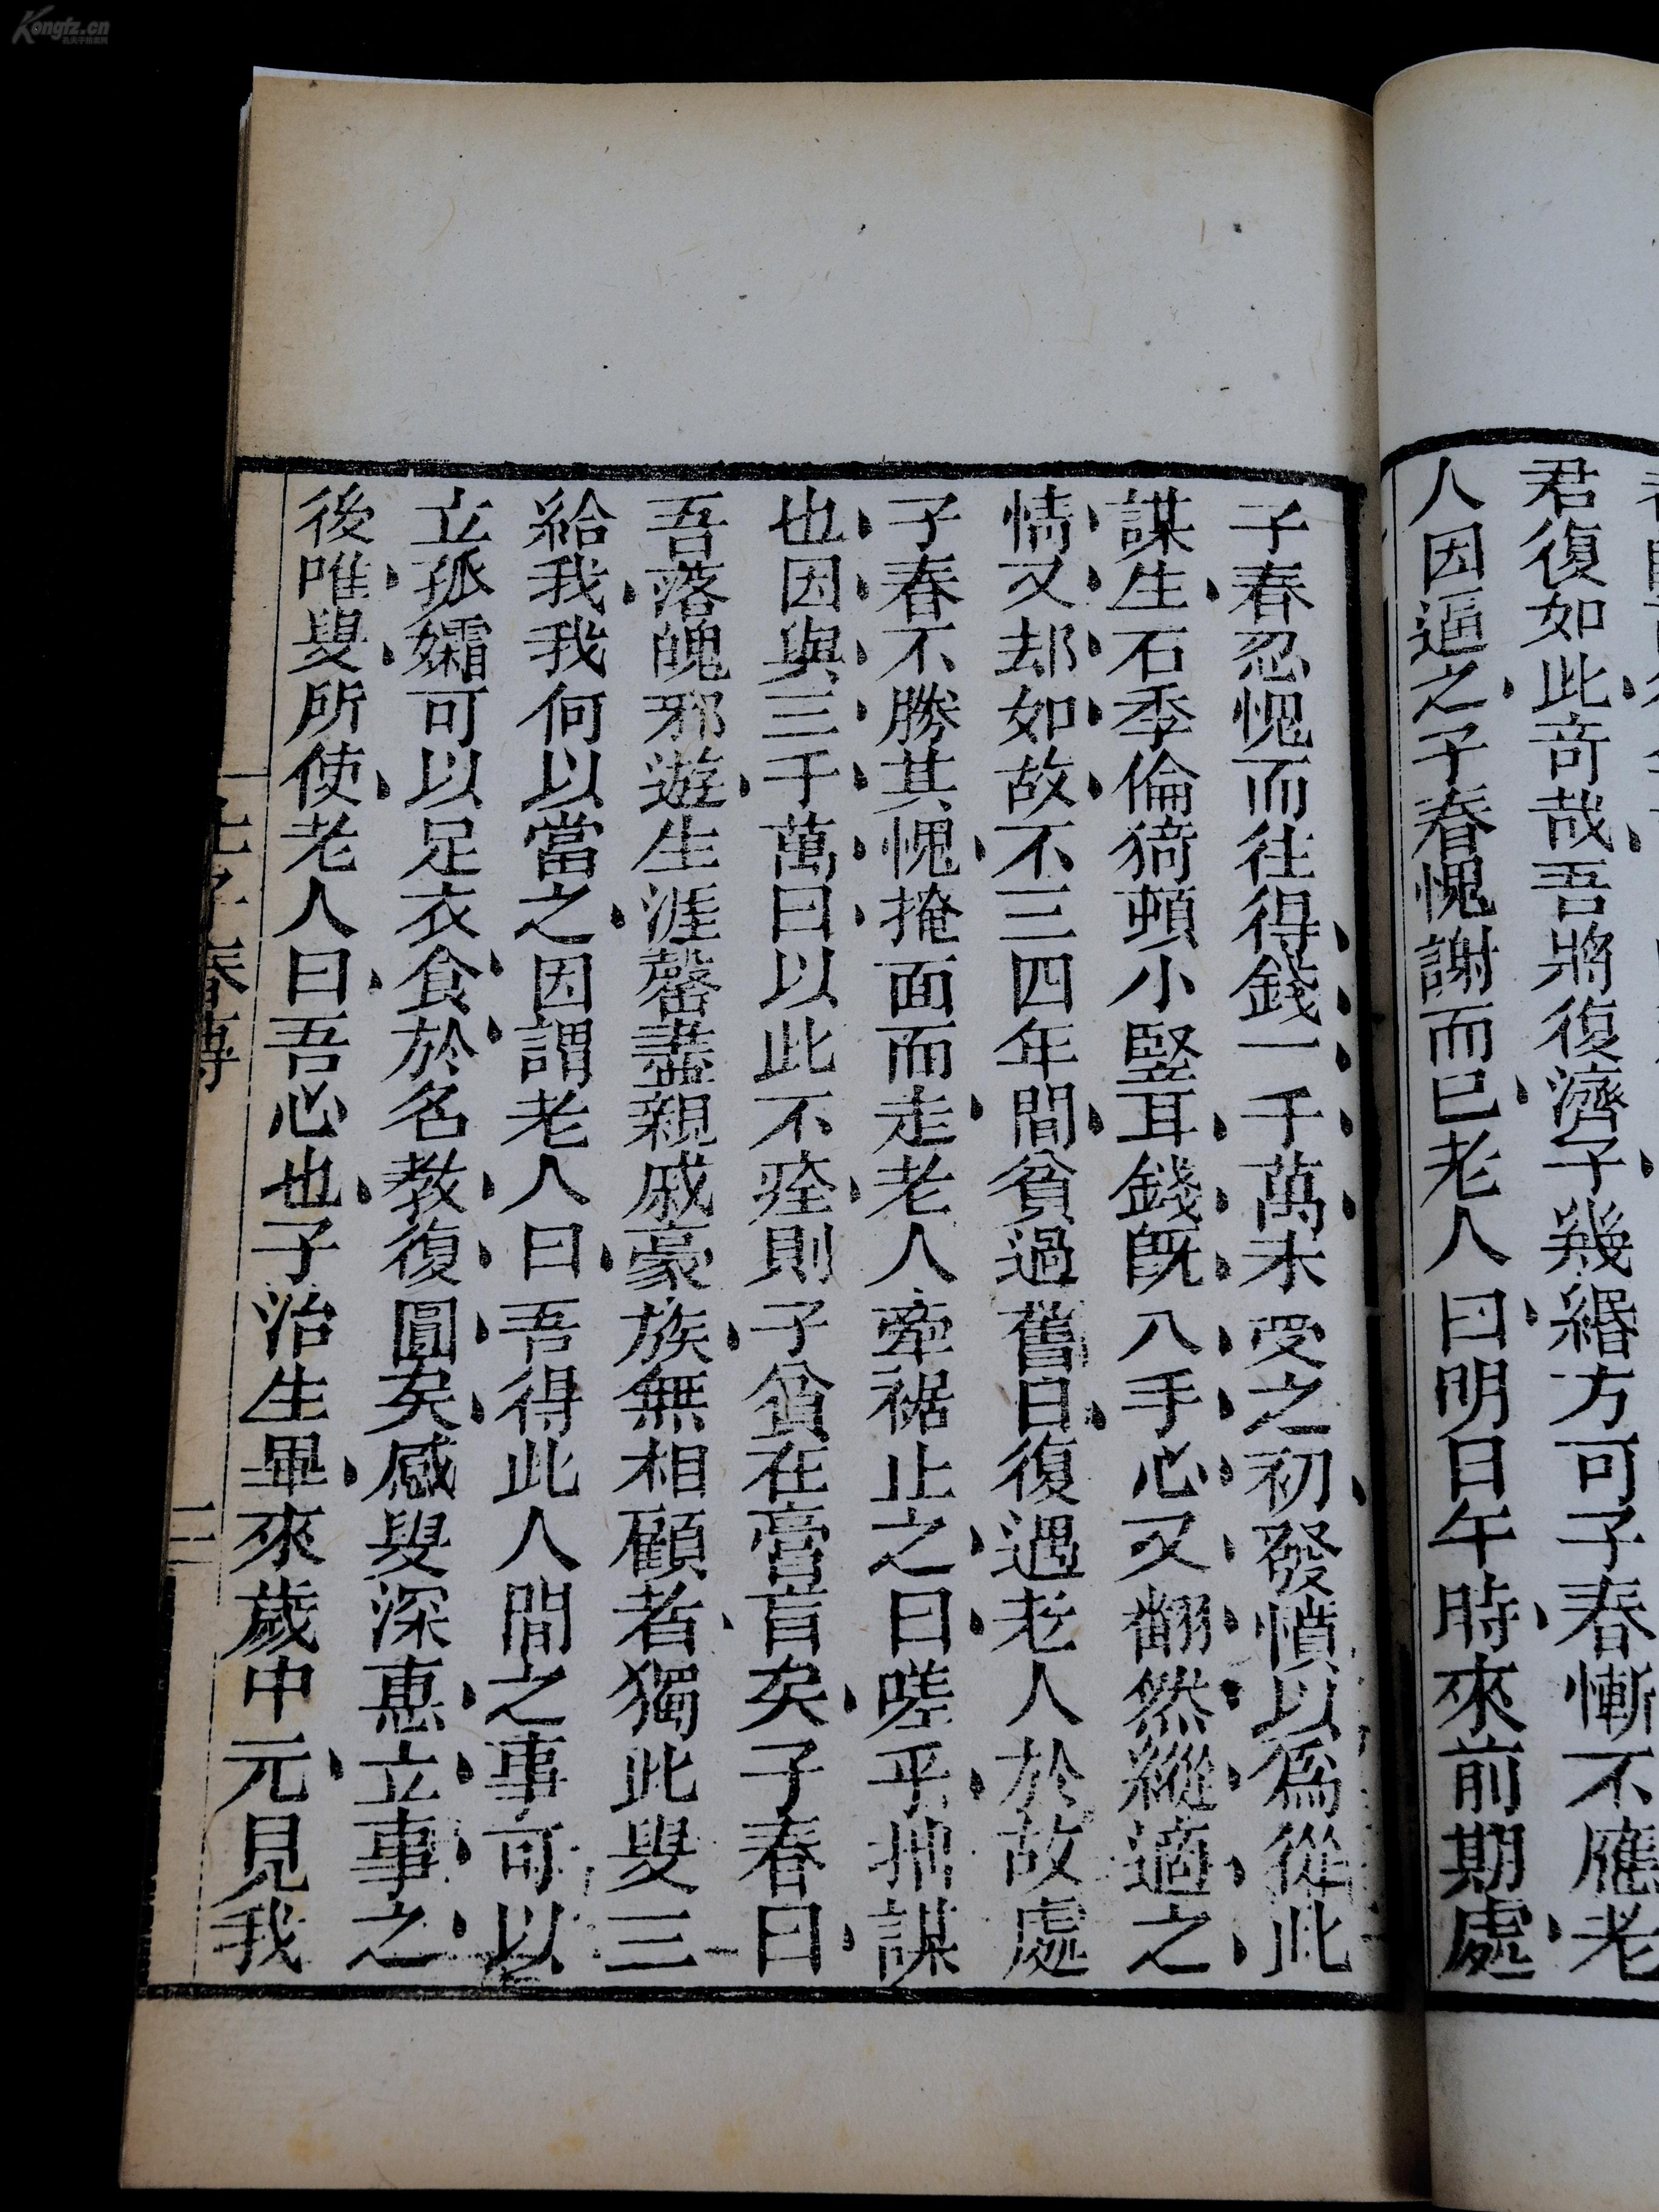 君復如此奇哉吾將復濟子幾緡方可子春慚不應老
人因逼之子春愧謝而已老人曰明日午時來前期處
子春忍愧而往得錢一千萬未受之初發憤以爲從此
謀生石季倫猗頓小豎耳錢既入手心又翻然縱適之
情又却如故不三四年間貧過舊日復遇老人於故處
子春不勝其愧掩面而走老人牽裾止之曰嗟乎拙謀
也因與三千萬曰以此不痊則子貧在膏肓矣子春曰
吾落魄邪遊生涯罄盡親戚豪族無相顧者獨此叟三
給我我何以當之因謂老人曰吾得此人間之事可以
立孤孀可以足衣食於名教復圓矣感叟深惠立事之
後唯叟所使老人曰吾心也子治生畢來歲中元見我
子春傳
二
Kongfz.cn